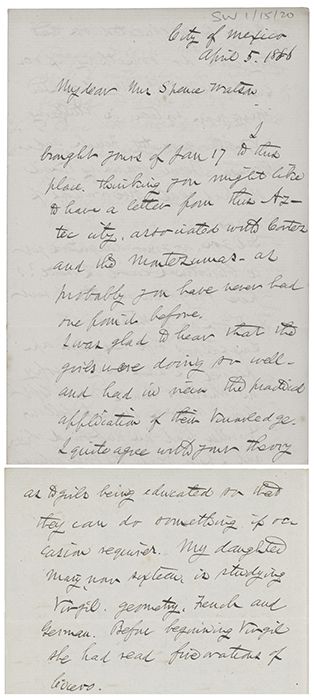 SW 1/15/20
City of Mexico
April 5. 1886
My dear Mrs Spence Watson
I
brought yours of Jan 17 to this
place. thinking you might like
to have a letter from this Az-
tec city, associated with Cortez
and the Montezumas - as
probably you have never had
one from it before.
I was glad to hear that the
girls were doing so well -
and had in view the practical
application of their knowledge.
I quite agree with your theory
as to girls being educated so that
they can do something if oc
casion requires. My daughter
Mary, now sixteen, is studying
Virgil, geometry, French and
German. Before beginning Virgil
she had read five orations of
Cicero.